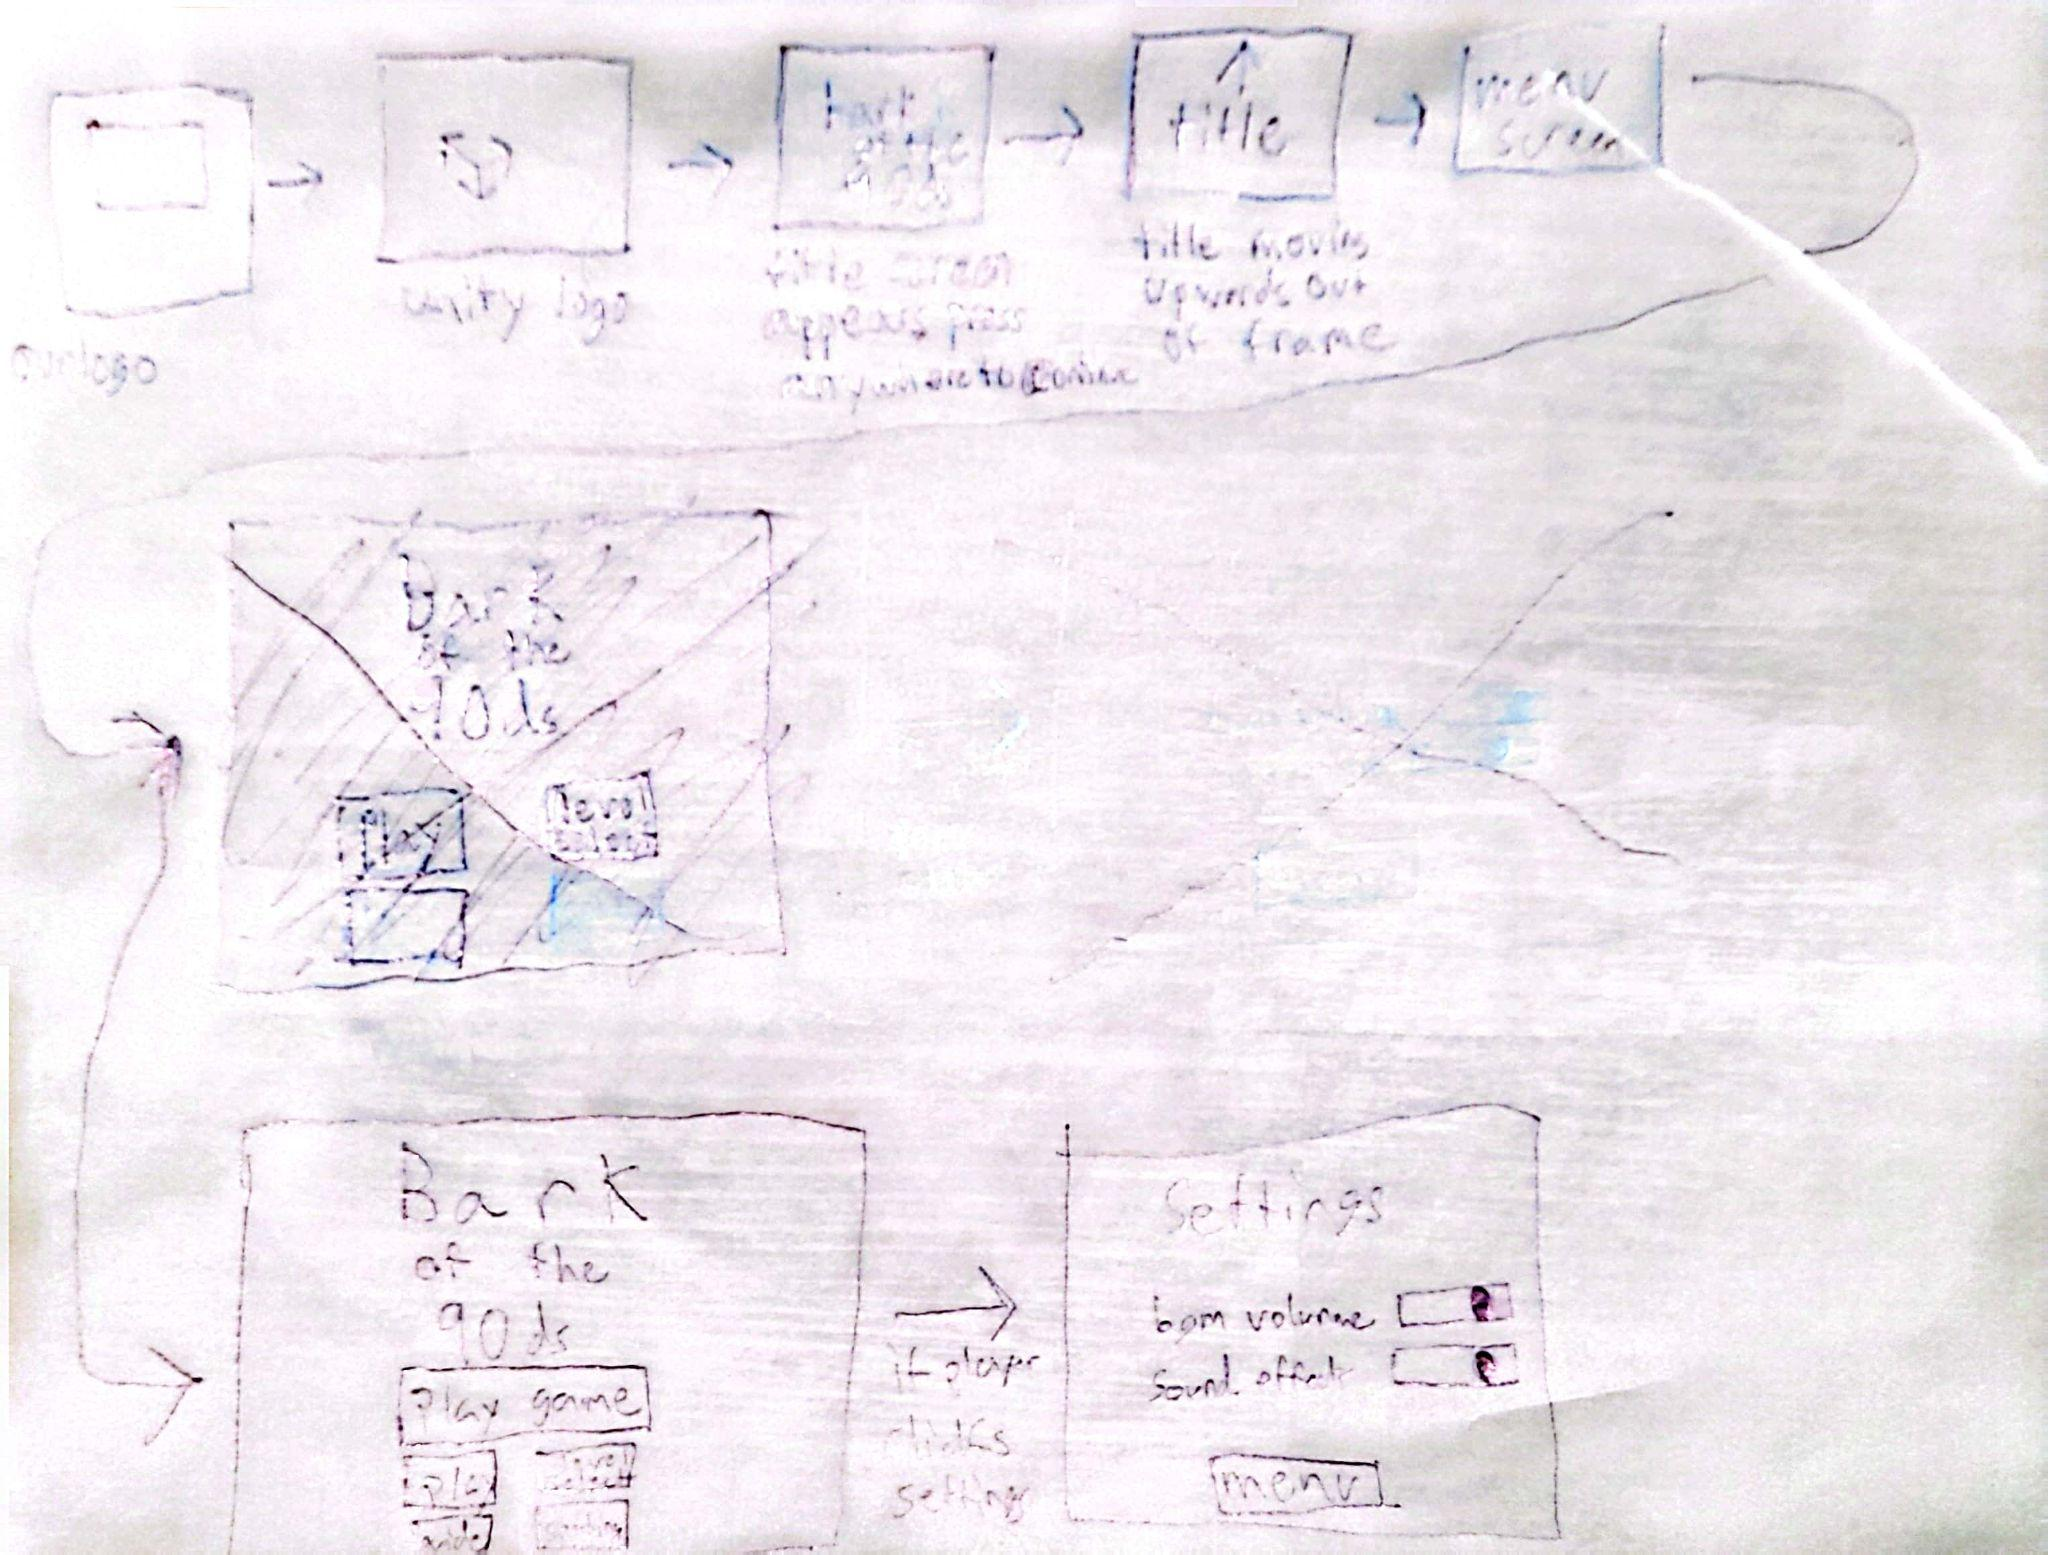 our logo
unity logo
bark
of the
90ds
title screen
appears press
anywhere to continue
title
title moving
upwards out
of frame
menu
screen
Bark
of the
90ds
Play
level
select
Bark
of the
90ds
play game
play
level
select
settings
if player
clicks
settings
Settings
bgm volume
Sound effect
menu